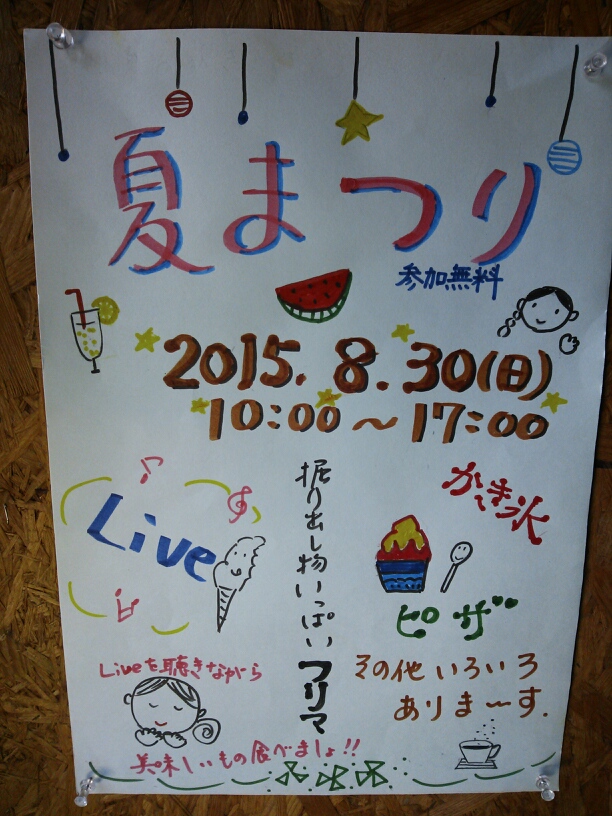 夏まつり
参加無料
2015. 8. 30(日)
10:00～17:00
Live
掘り出し物いっぱい フリマ
かき氷
ピザ
その他いろいろ
ありま〜す.
Liveを聴きながら
美味しいもの食べましょ!!